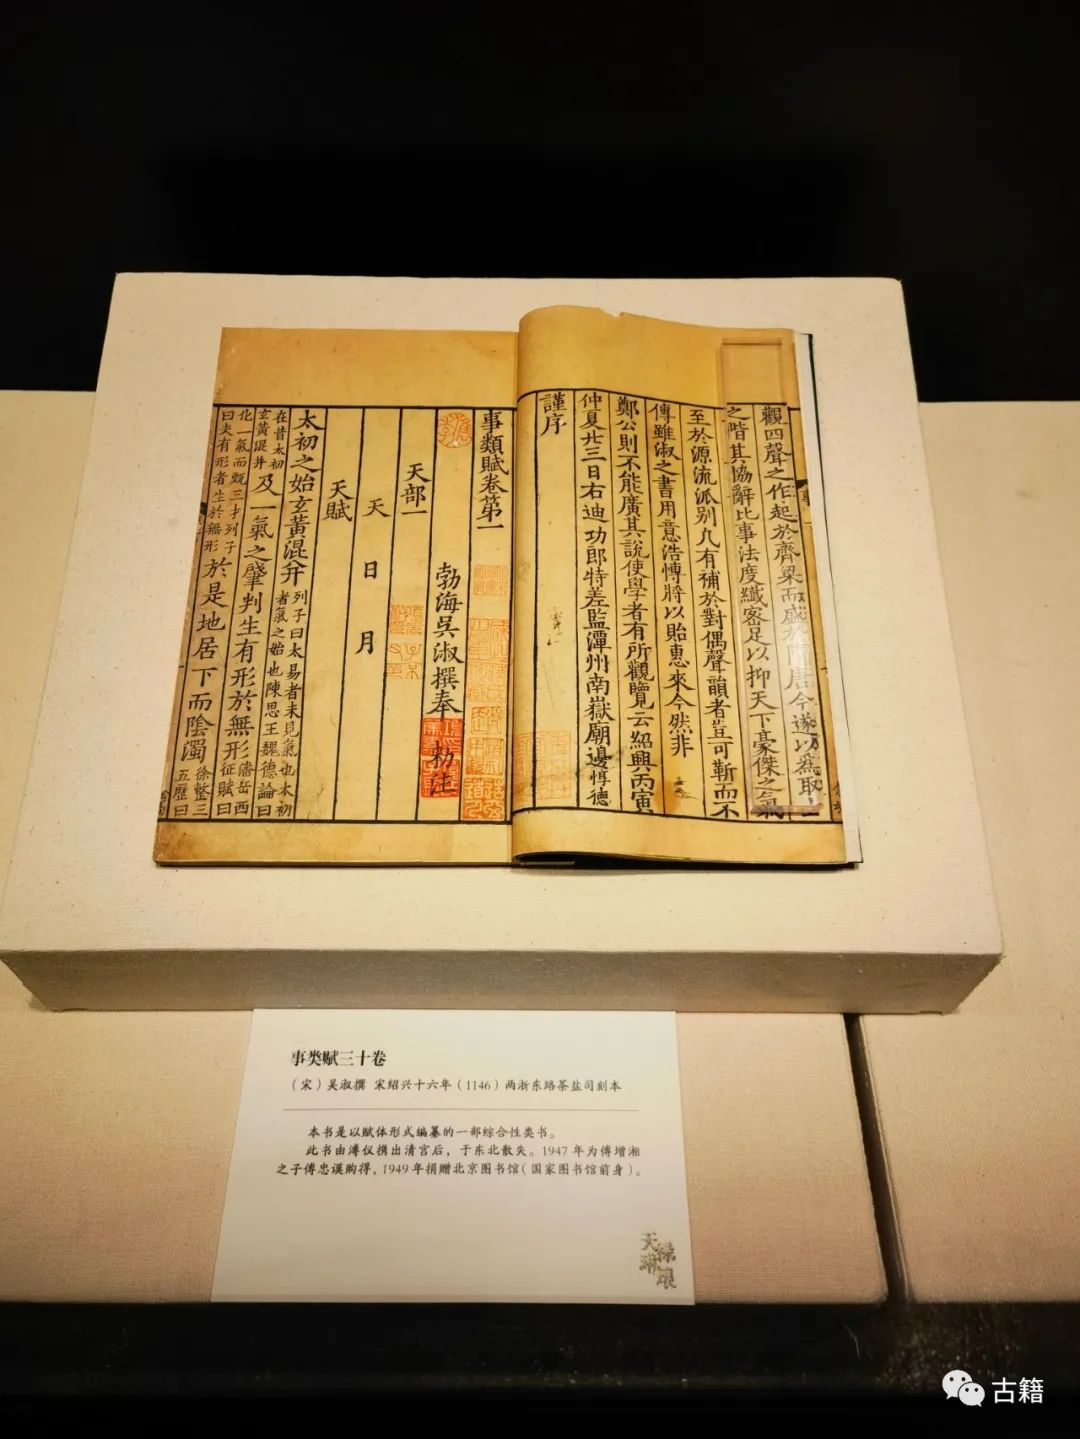 觀四聲之作起於齊梁而盛於隋唐今遂以爲取士
之階其協辭比事法度纖密足以抑天下豪傑之氣
至於源流派别凡有補於對偶聲韻者豈可靳而不
傳雖淑之書用意浩博將以貽惠來今然非
鄭公則不能廣其說使學者有所觀覽云紹興丙寅
仲夏廿三日右迪功郎特差監潭州南嶽廟邊惇德
謹序
事類賦卷第一
勃海吳淑撰奉 勑注
天部一
天 日 月
天賦
太初之始玄黃混并列子曰太易者未見氣也太初
者氣之始也陳思王魏德論曰
在昔太初
玄黃混并及一氣之肇判生有形於無形潘岳西
征賦曰
化一氣而甄三才列子
曰夫有形者生於無形於是地居下而陰濁徐整三
五歷曰
事类赋三十卷
（宋）吴淑撰 宋绍兴十六年（1146）两浙东路茶盐司刻本
本书是以赋体形式编纂的一部综合性类书。
此书由溥仪携出清宫后，于东北散失。1947年为傅增湘
之子傅忠谟购得，1949年捐赠北京图书馆（国家图书馆前身）。
古籍